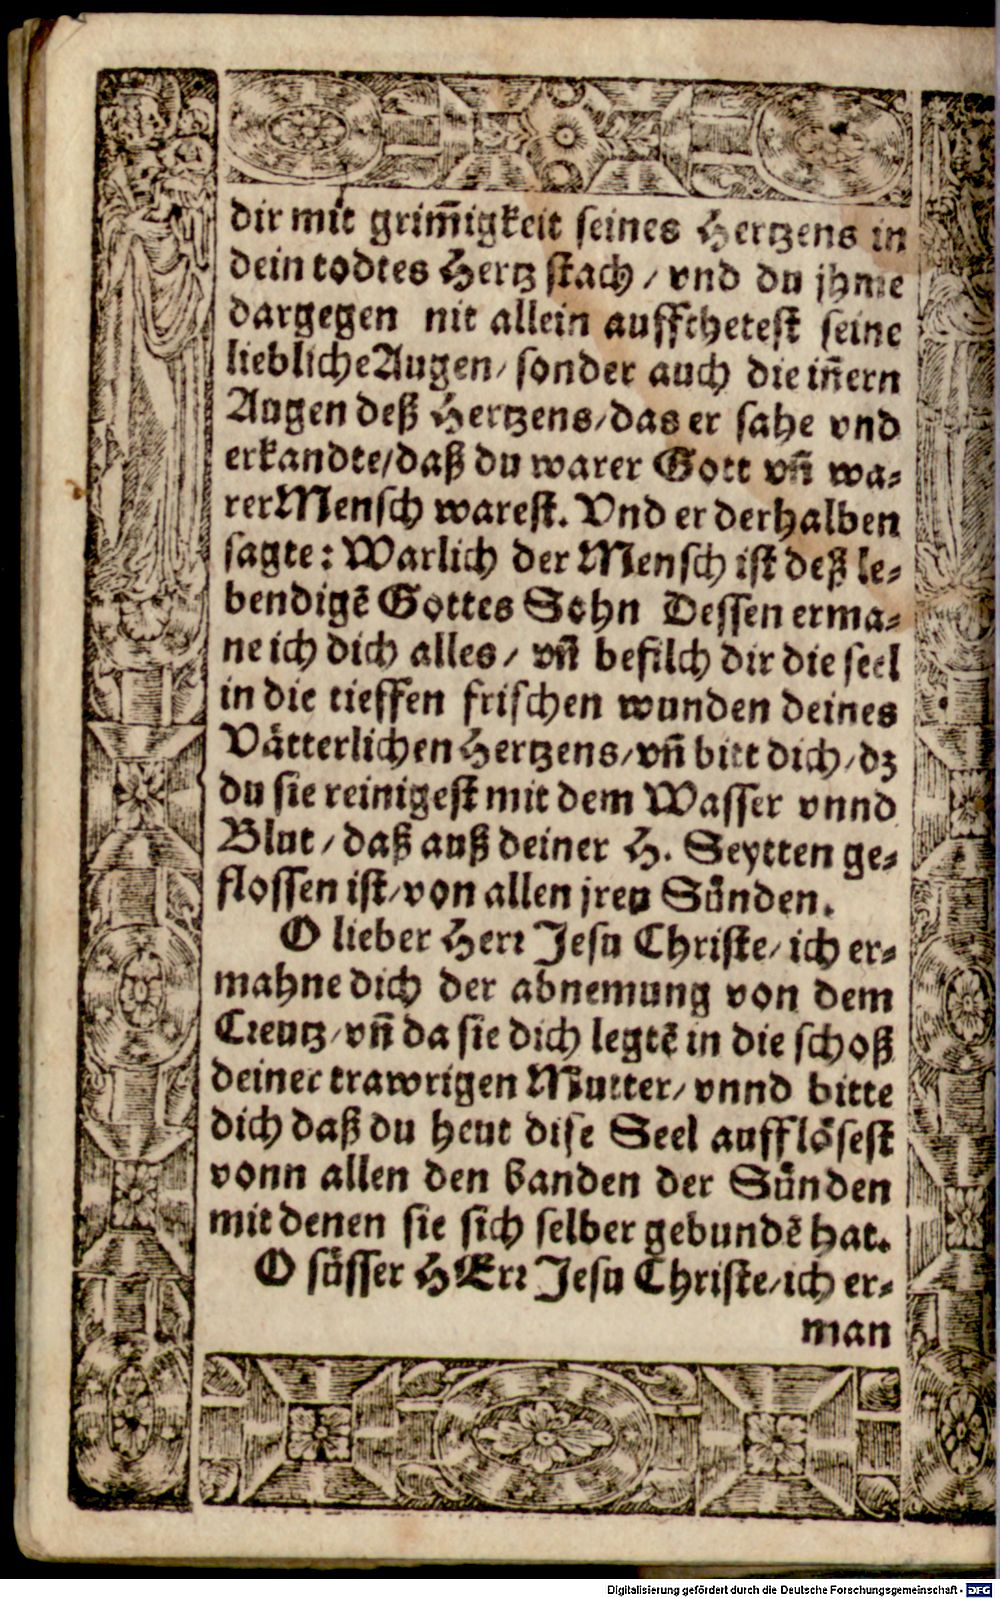 dir mit grim̃igkeit seines Hertzens in
dein todtes Hertz stach / vnd du jhme
dargegen nit allein auffthetest seine
liebliche Augen / sonder auch die iñern
Augen deß Hertzens / das er sahe vnd
erkandte / daß du warer Gott vñ wa-
rer Mensch warest. Vnd er derhalben
sagte: Warlich der Mensch ist deß le-
bendigẽ Gottes Sohn Dessen erma-
ne ich dich alles / vñ befilch dir die seel
in die tieffen frischen wunden deines
Vätterlichen Hertzens / vñ bitt dich / dz
du sie reinigest mit dem Wasser vnnd
Blut / daß auß deiner H. Seytten ge-
flossen ist / von allen jren Sünden.
O lieber Herr Jesu Christe / ich er-
mahne dich der abnemung von dem
Creutz / vñ da sie dich legtẽ in die schoß
deiner trawrigen Mutter / vnnd bitte
dich daß du heut dise Seel aufflösest
vonn allen den banden der Sünden
mit denen sie sich selber gebundẽ hat.
O süsser HErr Jesu Christe / ich er-
man
Digitalisierung gefördert durch die Deutsche Forschungsgemeinschaft - DFG